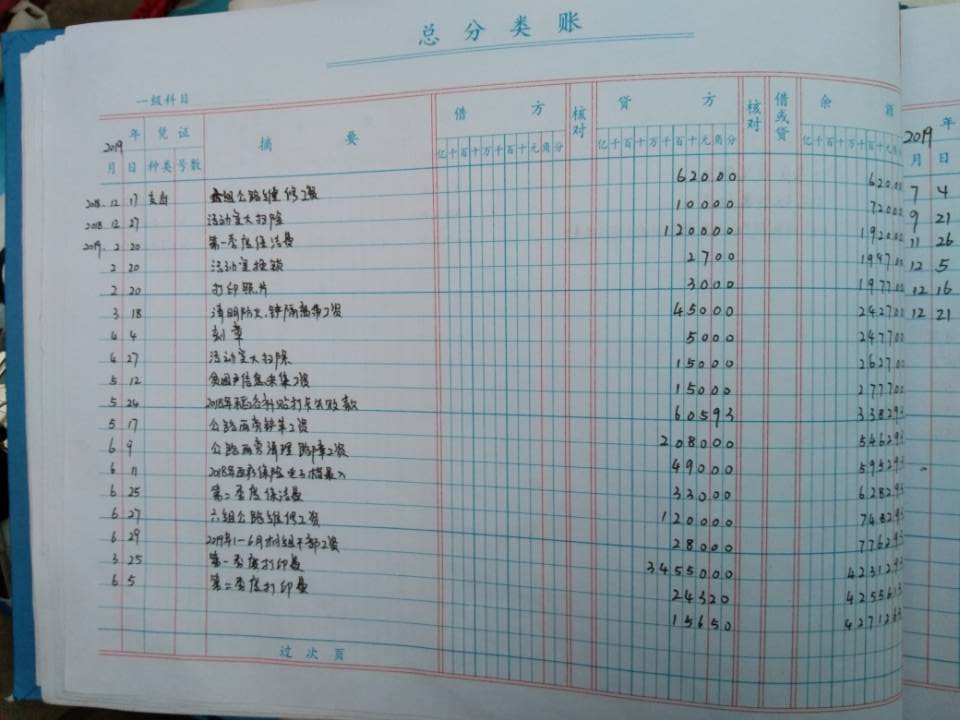 总分类账
一级科目
2019 年 凭证 摘要 借方 核对 贷方 核对 借或贷 余额
月 日 种类 号数 亿千百十万千百十元角分 亿千百十万千百十元角分 亿千百十万千百十元角分
2018.12 17 组公路维修工资 62000 62000
2018.12 27 活动室大扫除 10000 72000
2019.2 20 第一季度保洁费 120000 192000
2 20 活动室换锁 2700 194700
2 20 打印照片 3000 197700
3 18 清明防火、铲隔离带工资 45000 242700
4 4 刻章 5000 247700
4 27 活动室大扫除 15000 262700
5 12 贫困户信息采集工资 15000 277700
5 24 2018年 打卡失败款 60593 338293
5 17 公路两旁铲草工资 208000 546293
6 9 公路两旁清理路障工资 49000 595293
6 11 2018年医疗保险电子档录入 33000 628293
6 25 第二季度保洁费 120000 748293
6 27 六组公路维修工资 28000 776293
6 29 2019年1-6月村组干部工资 3455000 4231293
3 25 第一季度打印费 24320 425561
6 5 第二季度打印费 15650 427126
过次页
2019 年
月 日
7 4
9 21
11 26
12 5
12 16
12 21